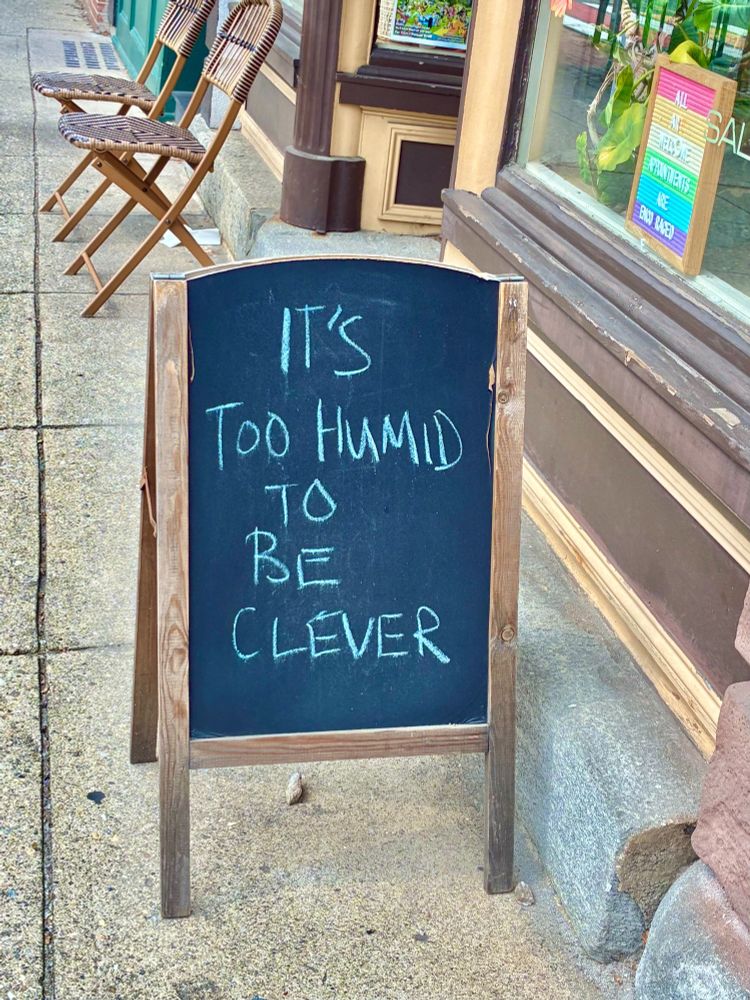 IT'S
TOO HUMID
TO
BE
CLEVER
ALL
WELCOME
APPOINTMENTS
ARE
ENCOURAGED
SAL